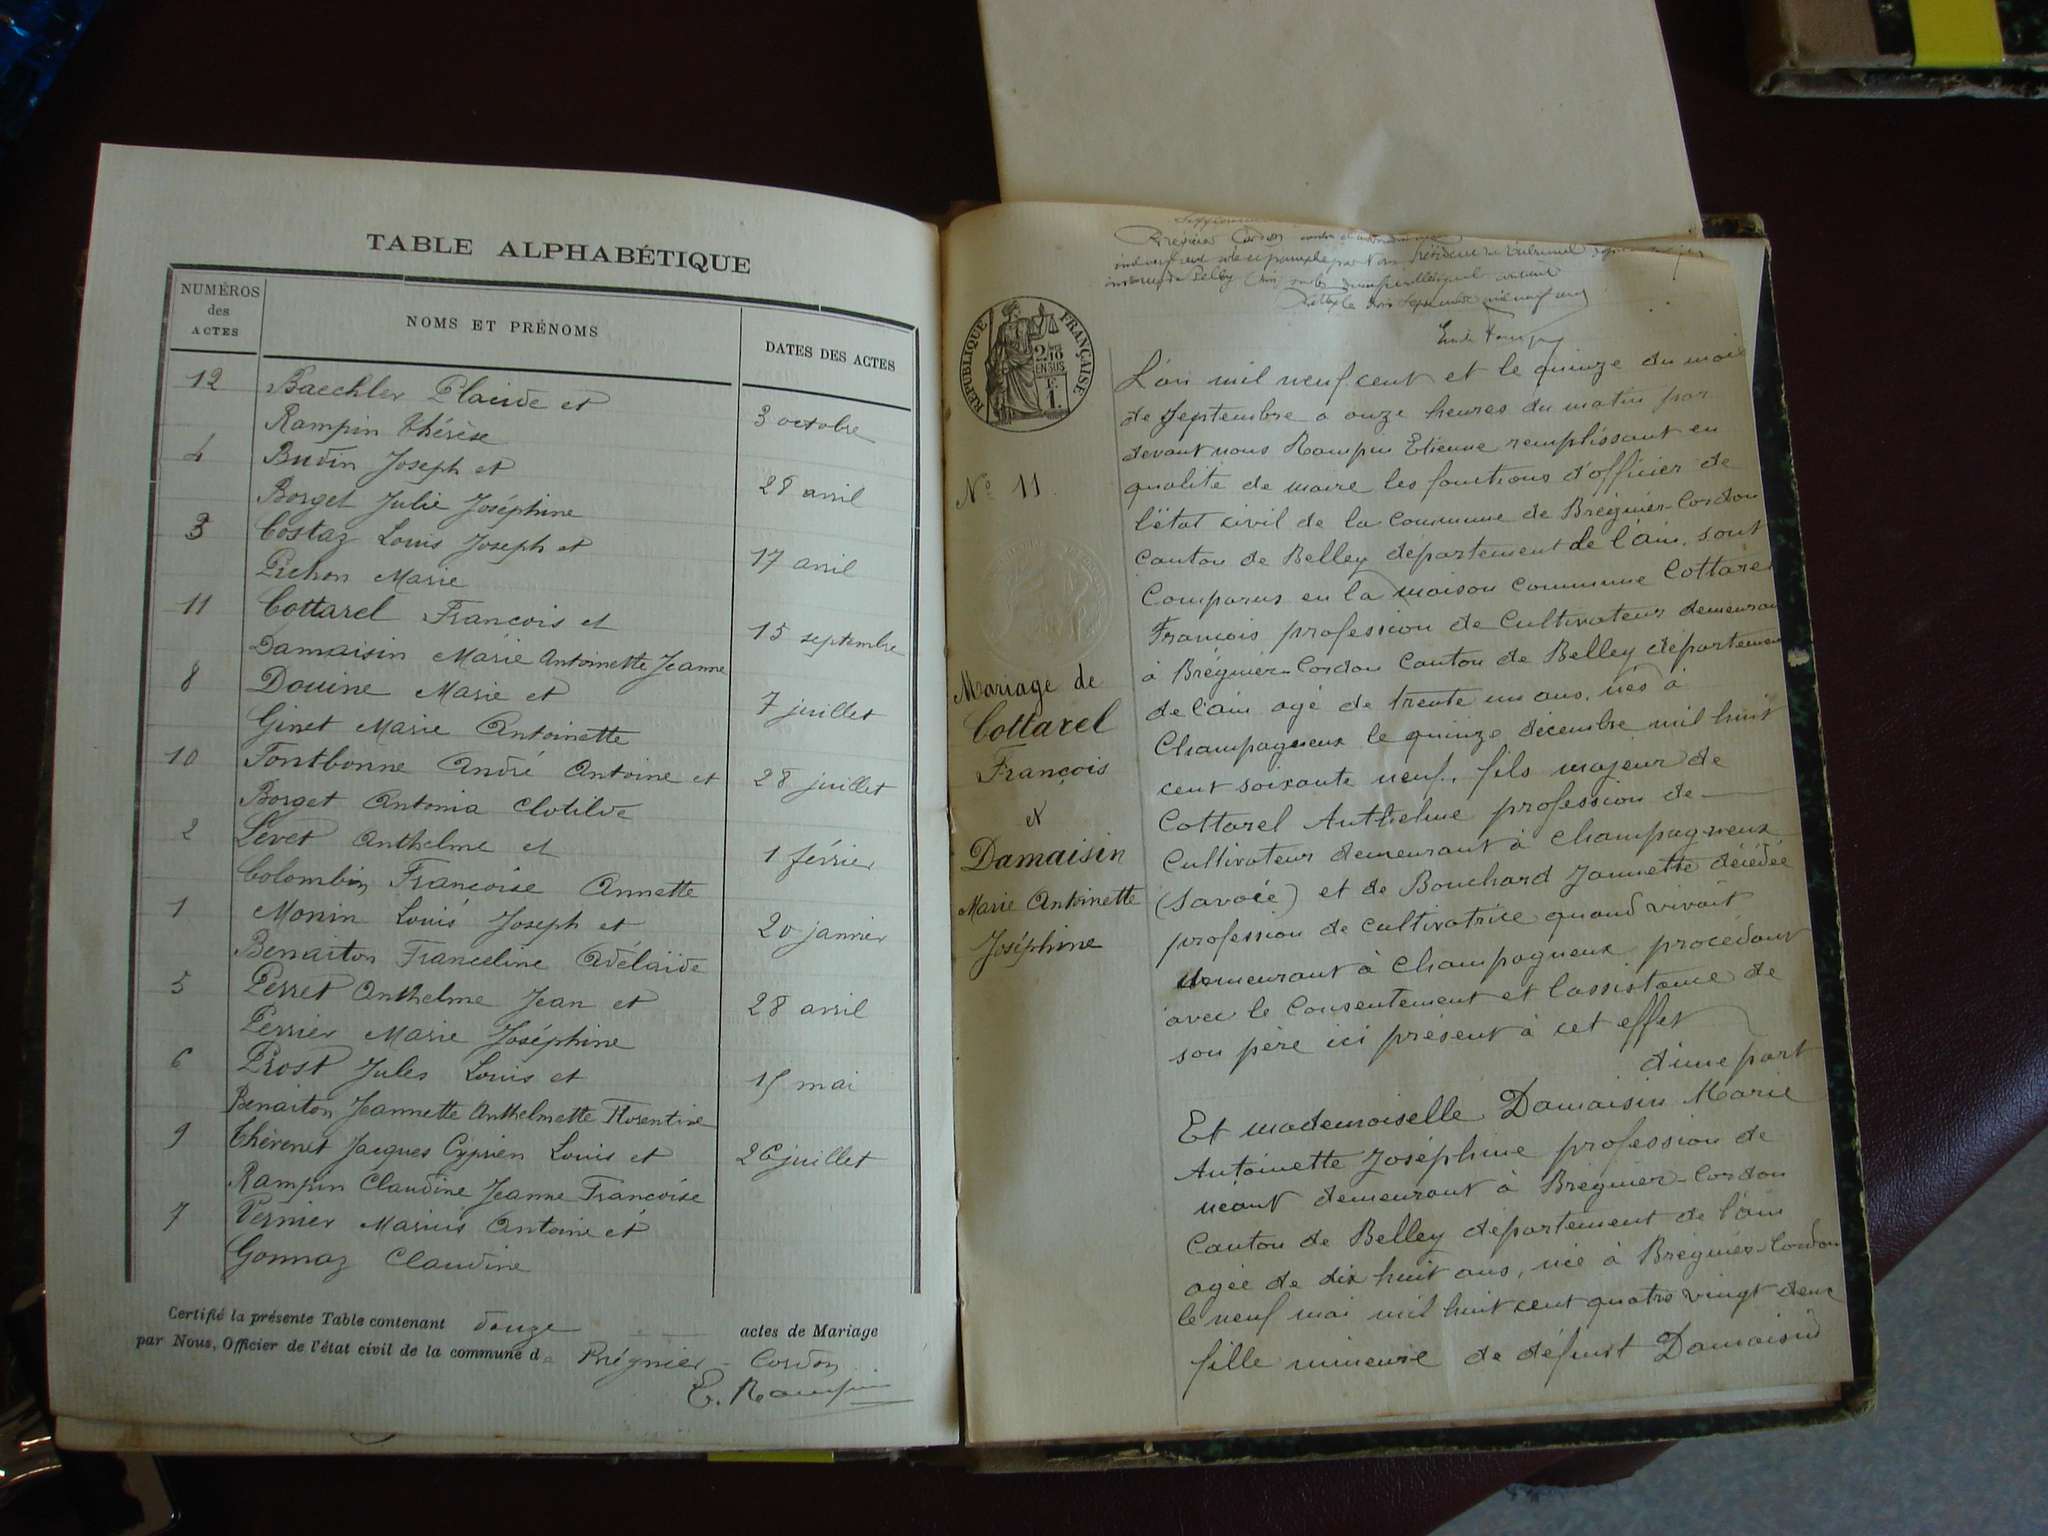 TABLE ALPHABÉTIQUE
NUMÉROS
des
ACTES
NOMS ET PRÉNOMS
DATES DES ACTES
12 Baechler Placide et
Rampin Thérèse 3 octobre
4 Budin Joseph et
Borget Julie Joséphine 28 avril
3 Costaz Louis Joseph et
Pichon Marie 17 avril
11 Cottarel François et
Damaisin Marie Antoinette Jeanne 15 septembre
8 Douine Marie et
Ginet Marie Antoinette 7 juillet
10 Fontbonne André Antoine et
Borget Antonia Clotilde 28 juillet
2 Levet Anthelme et
Colombin Françoise Annette 1 février
1 Monin Louis Joseph et
Benaiton Franceline Adélaïde 20 janvier
5 Perret Anthelme Jean et
Perrier Marie Joséphine 28 avril
6 Prost Jules Louis et
Benaiton Jeannette Anthelmette Florentine 15 mai
9 Thévenet Jacques Cyprien Louis et
Rampin Claudine Jeanne Françoise 26 juillet
7 Vernier Marius Antoine et
Gonnaz Claudine
Certifié la présente Table contenant douze actes de Mariage
par Nous, Officier de l'état civil de la commune de Brégnier-Cordon
E. Rampin
Brégnier Cordon
RÉPUBLIQUE FRANÇAISE
2/10
EN SUS
1 F.
L'an mil neuf cent et le quinze du mois
de Septembre a onze heures du matin par
devant nous Rampin Etienne remplissant en
qualité de maire les fonctions d'officier de
l'état civil de la Commune de Brégnier-Cordon
Canton de Belley département de l'ain, sont
Comparus en la maison Commune Cottarel
François profession de Cultivateur demeurant
à Brégnier-Cordon Canton de Belley département
de l'ain agé de trente un ans, nés à
Champagneux le quinze décembre mil huit
cent soixante neuf, fils majeur de
Cottarel Anthelme profession de
Cultivateur demeurant à Champagneux
(Savoie) et de Bouchard Jannette décédée
profession de cultivatrice quand vivait
demeurant à Champagneux, procédant
avec le Consentement et l'assistance de
son père ici présent à cet effet
d'une part
Et mademoiselle Damaisin Marie
Antoinette Joséphine profession de
néant demeurant à Brégnier-Cordon
Canton de Belley département de l'ain
agée de dix huit ans, née à Brégnier-Cordon
le neuf mai mil huit cent quatre vingt deux
fille mineure de défunt Damaisin
No 11
Mariage de
Cottarel
François
et
Damaisin
Marie Antoinette
Joséphine